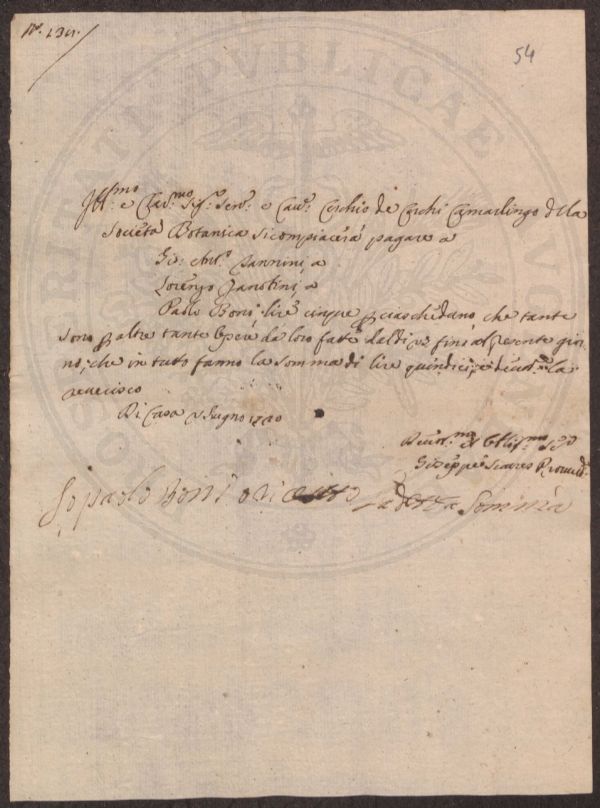 Nº. 134.
54
Ill:mo e Clar:mo Sig:e Sen:e e Cav:e Cerchio de Cerchi Camarlingo della
Società Botanica si compiacerà pagare a
Gio: Ant:o Nannini, a
Lorenzo Zanobini, a
Paolo Boni lire cinque p ciascheduno, che tante
sono p altre tante Opere da loro fatte dal dì fino al presente gior
no, che in tutto fanno la somma di lire quindici, e devot:te la
reverisco
Di Casa Giugno
Devot:mo et Obblig:mo
Giuseppe Suares
Io paolo Boni o riceuto la detta Somma
CONSERITATI PVBLICAE